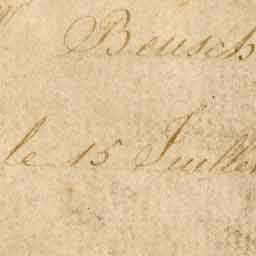 Beusch
le 15 Juillet